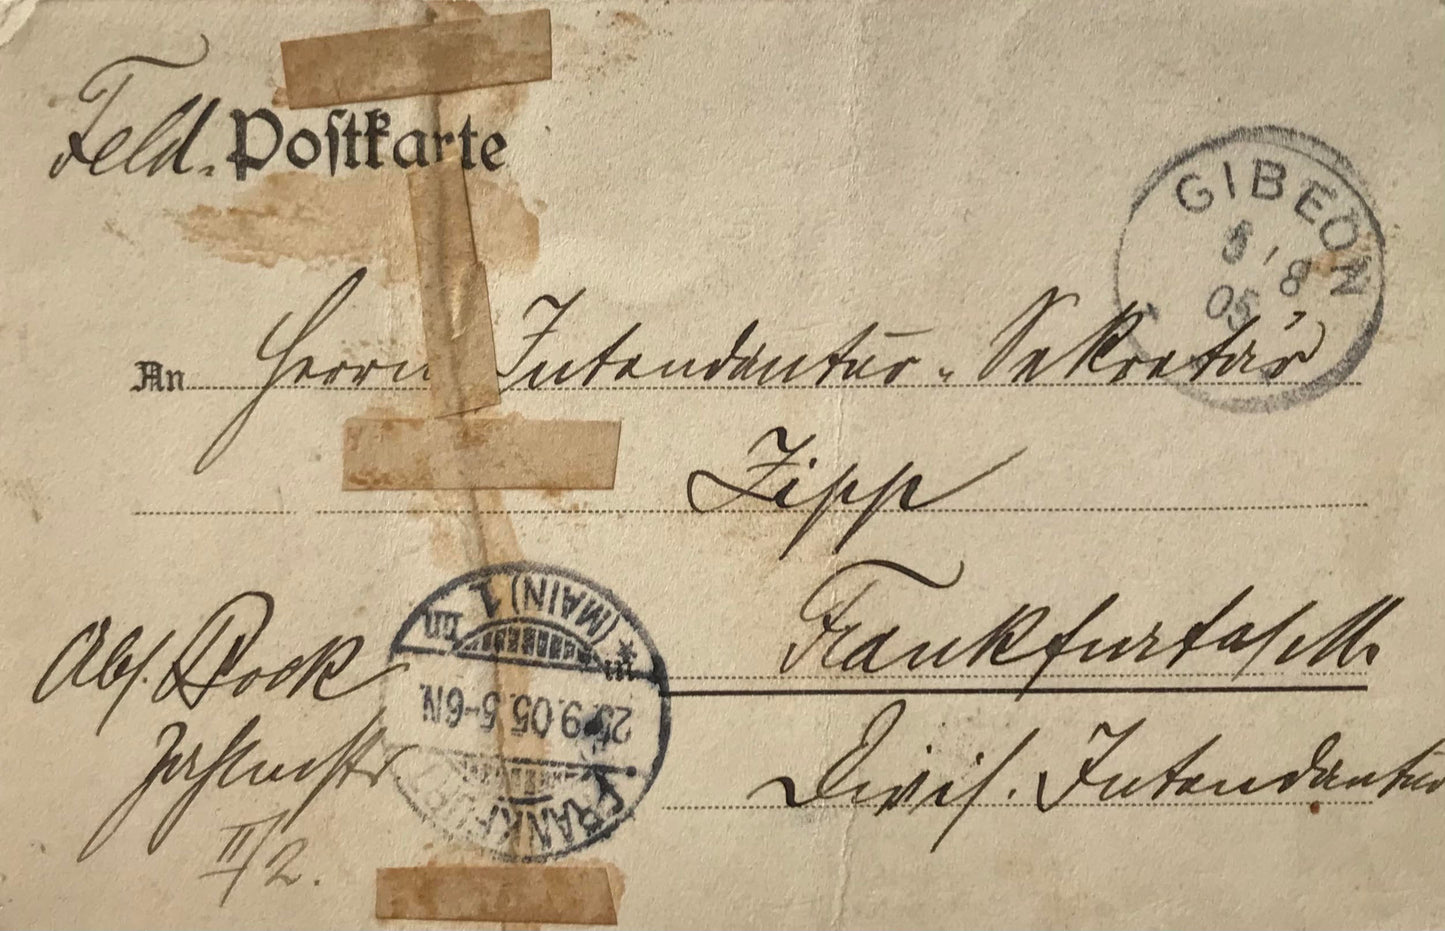 Feld-Postkarte
GIBEON
5/8
05
An Herrn Intendantur-Sekretär
Zipp
Frankfurt a/M.
Divis. Intendantur
Abs. Bock
Zahlmstr.
II/2.
FRANKFURT * (MAIN) 1
25.9.05.5-6N.